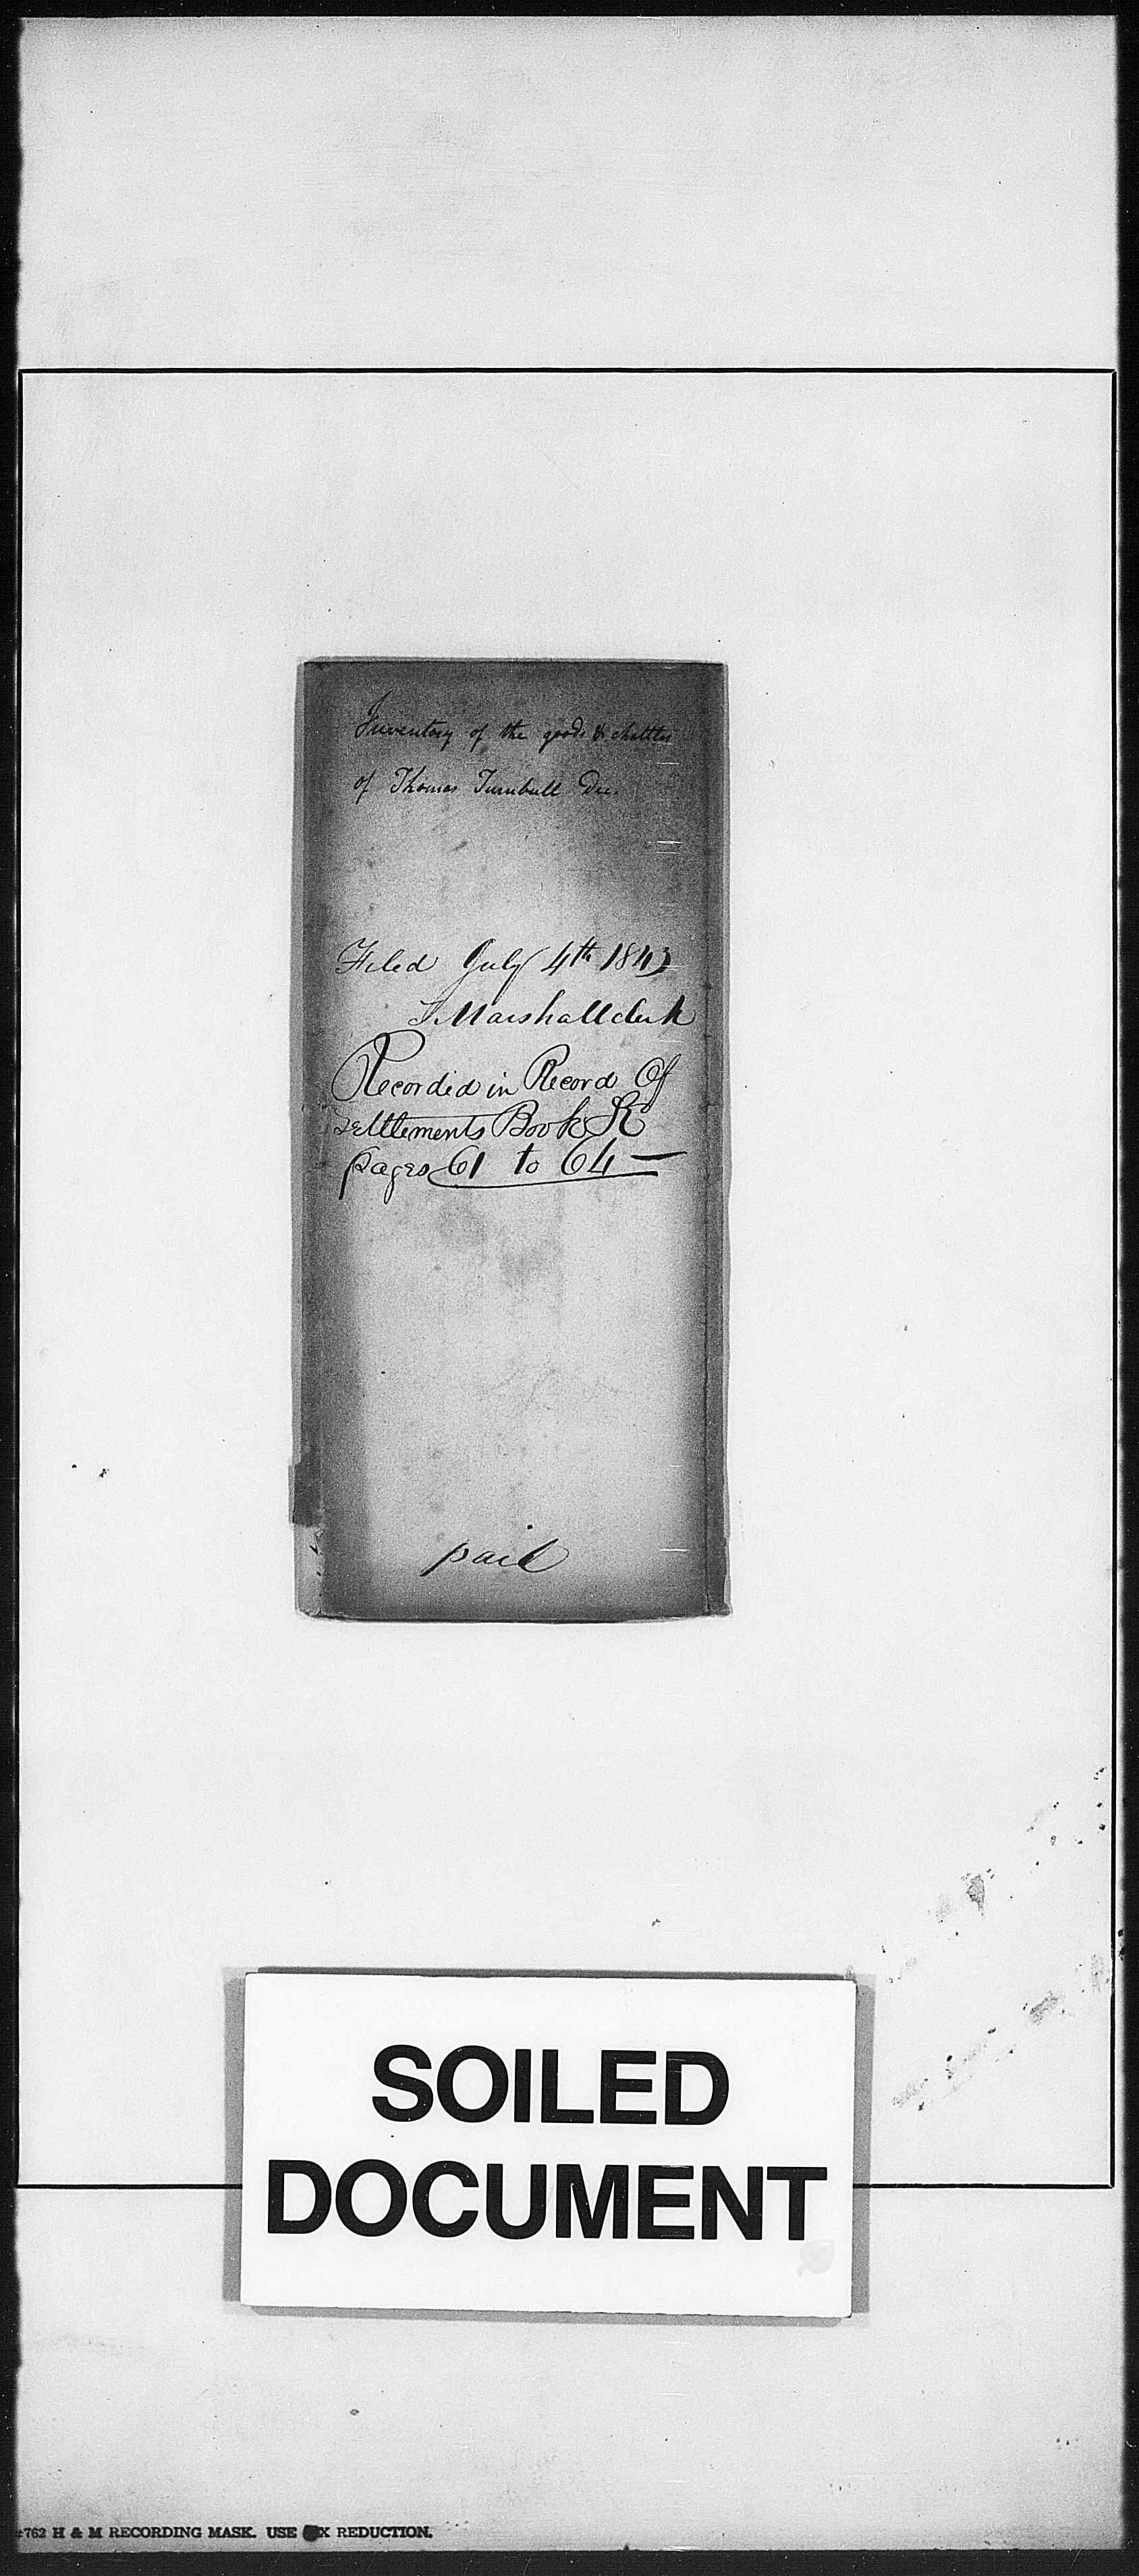 Inventory of the goods & chattles
of Thomas Turnbull Dec.
Filed July 4th 1843
T. Marshall clerk
Recorded in Record Of
Settlements Book K
pages 61 to 64 —
paid
SOILED
DOCUMENT
762 H & M RECORDING MASK. USE X REDUCTION.